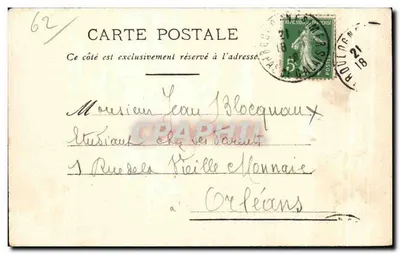 62
CARTE POSTALE
Ce côté est exclusivement réservé à l'adresse
Monsieur Jean Blocquaux
Etudiant chez ses Parents
1 Rue de la Vieille Monnaie
à Orléans
5
21
18
BOULOGNE
21
18